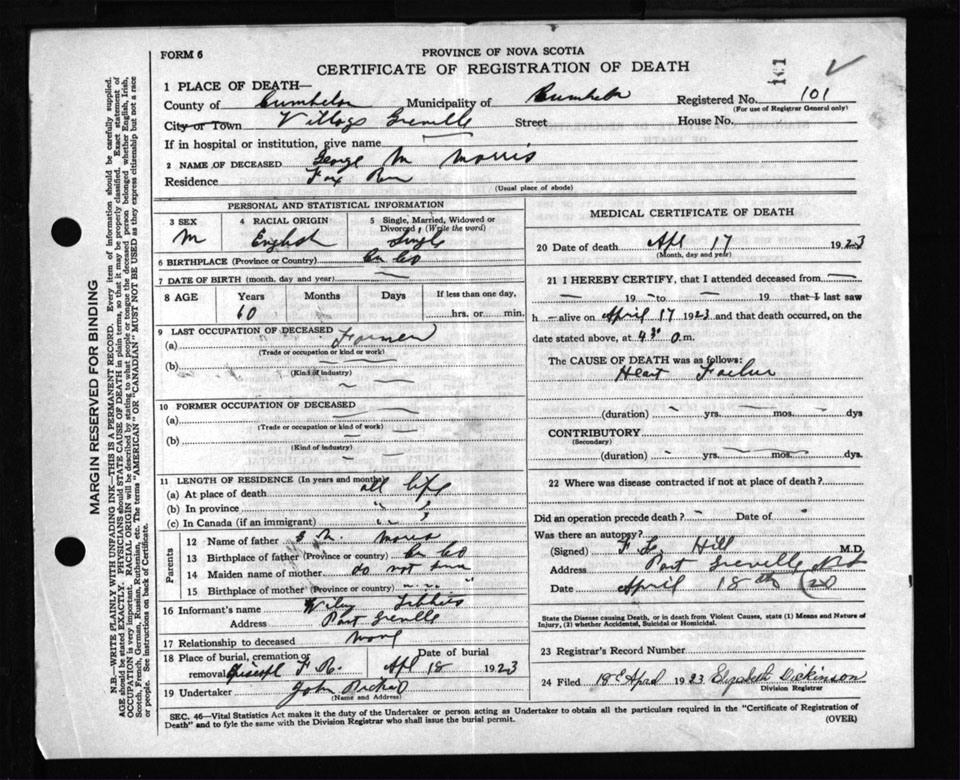 101
FORM 6
PROVINCE OF NOVA SCOTIA
CERTIFICATE OF REGISTRATION OF DEATH
1 PLACE OF DEATH—
County of Municipality of Registered No. 101
(For use of Registrar General only)
City or Town Village Greville Street House No.
If in hospital or institution, give name
2 NAME OF DECEASED George M Morris
Residence Fox River
(Usual place of abode)
PERSONAL AND STATISTICAL INFORMATION
3 SEX 4 RACIAL ORIGIN 5 Single, Married, Widowed or Divorced, (Write the word)
M English Single
6 BIRTHPLACE (Province or Country) Co
7 DATE OF BIRTH (month, day and year)
8 AGE Years Months Days If less than one day,
60 hrs. or min.
9 LAST OCCUPATION OF DECEASED Farmer
(a)
(Trade or occupation or kind or work)
(b)
(Kind of industry)
10 FORMER OCCUPATION OF DECEASED
(a)
(Trade or occupation or kind of work)
(b)
(Kind of industry)
11 LENGTH OF RESIDENCE (In years and months)
(a) At place of death all life
(b) In province " "
(c) In Canada (if an immigrant) " "
Parents
12 Name of father Morris
13 Birthplace of father (Province or country) Co
14 Maiden name of mother do not
15 Birthplace of mother (Province or country) " " "
16 Informant's name Wiley
Address Port Greville
17 Relationship to deceased none
18 Place of burial, cremation or removal F. R. Date of burial Apl 18 1923
19 Undertaker John
(Name and Address)
MEDICAL CERTIFICATE OF DEATH
20 Date of death Apl 17 1923
(Month, day and year)
21 I HEREBY CERTIFY, that I attended deceased from
— 19 — to — 19 that I last saw
h — alive on April 17 1923 and that death occurred, on
date stated above, at 4 30 m.
The CAUSE OF DEATH was as follows:
Heart Failure
(duration) yrs. mos. dys
CONTRIBUTORY
(Secondary)
(duration) yrs. mos. dys.
22 Where was disease contracted if not at place of death?
Did an operation precede death? Date of
Was there an autopsy?
(Signed) Hill M.D.
Address Port Greville NS
Date April 18th
State the Disease causing Death, or in death from Violent Causes, state (1) Means and Nature of
Injury, (2) whether Accidental, Suicidal or Homicidal.
23 Registrar's Record Number
24 Filed 18 April 1923 Elizabeth Dickinson
Division Registrar
SEC. 46—Vital Statistics Act makes it the duty of the Undertaker or person acting as Undertaker to obtain all the particulars required in the "Certificate of Registration of
Death" and to fyle the same with the Division Registrar who shall issue the burial permit.
(OVER)
MARGIN RESERVED FOR BINDING
N.B.—WRITE PLAINLY WITH UNFADING INK—THIS IS A PERMANENT RECORD. Every item of information should be carefully supplied.
AGE should be stated EXACTLY. PHYSICIANS should STATE CAUSE OF DEATH in plain terms, so that it may be properly classified. Exact statement of
OCCUPATION is very important. RACIAL ORIGIN will be described by stating to what people or tongue the deceased person belonged whether English, Irish,
Scotch, French, German, Russian, Ruthenian, etc. The terms "AMERICAN" or "CANADIAN" MUST NOT BE USED as they express citizenship but not a race
or people. See instructions on back of Certificate.